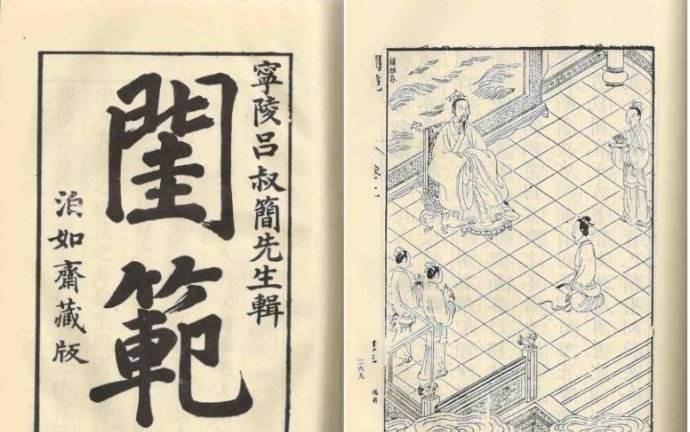 寧陵呂叔簡先生輯
閨範
泊如齋藏版
二六九